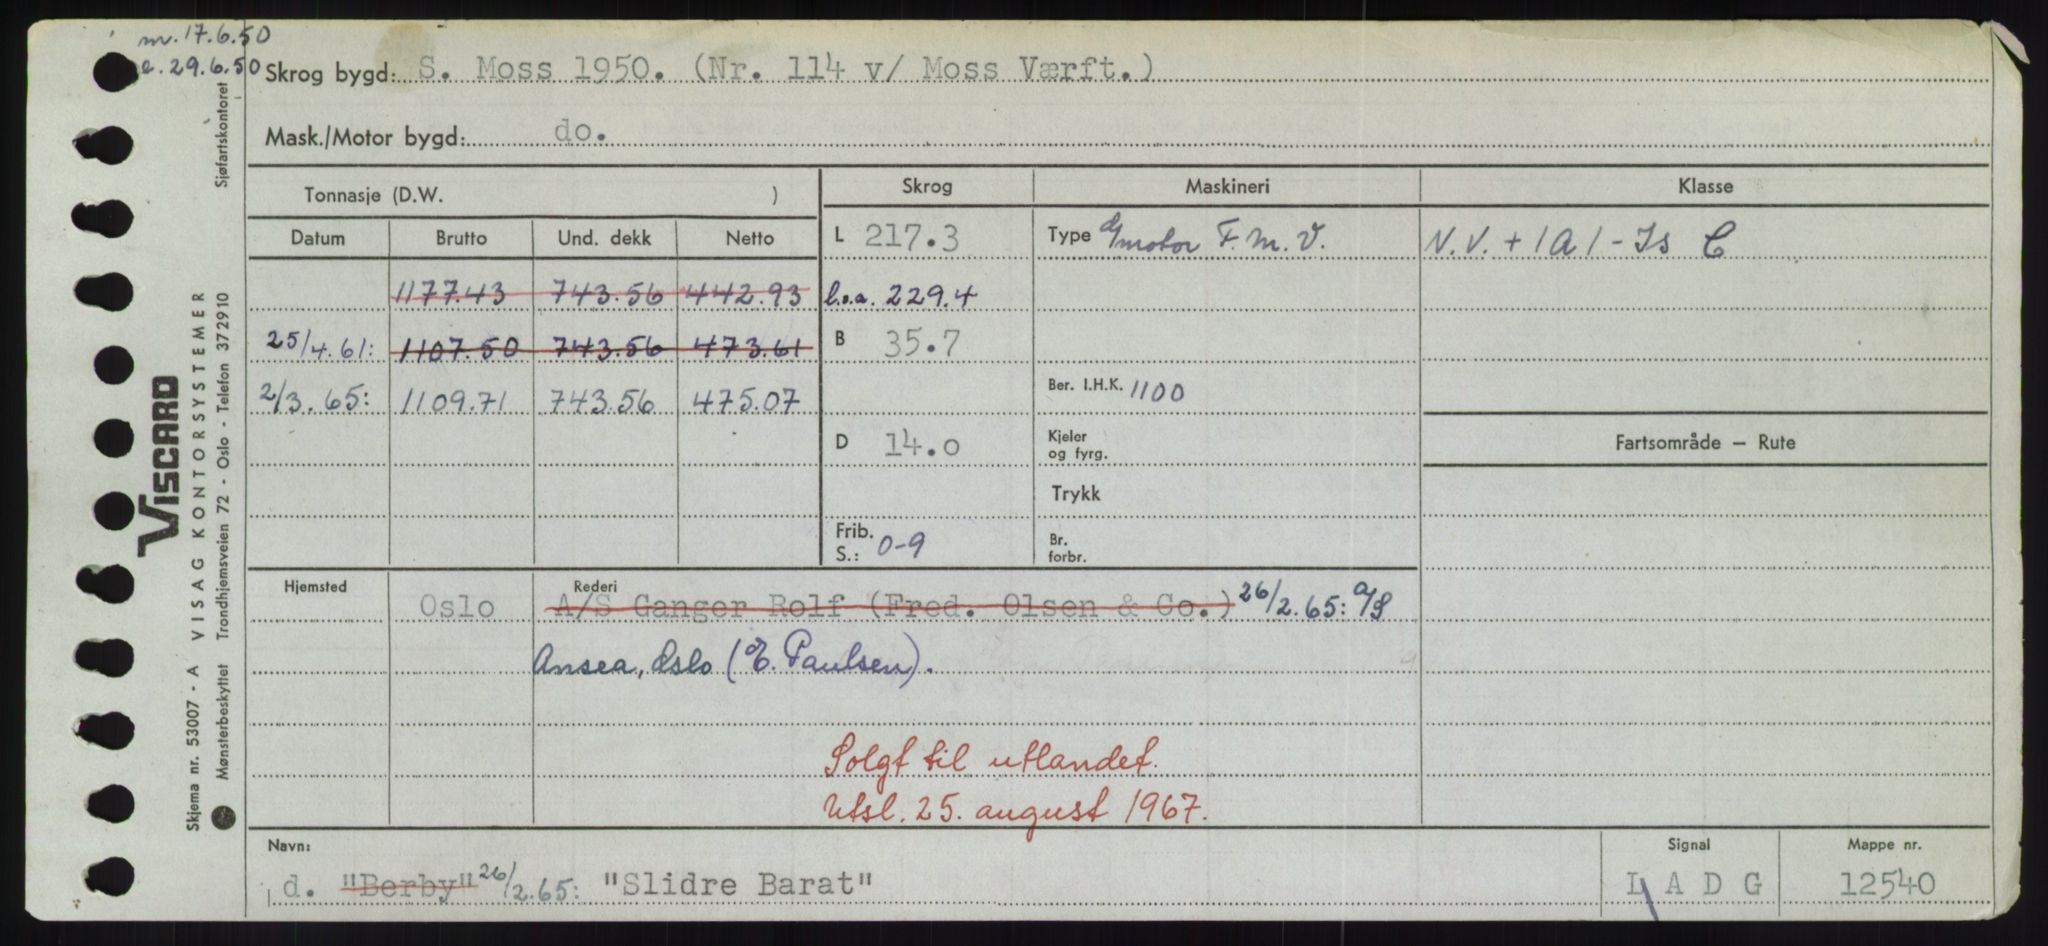 m. 17.6.50
e. 29.6.50
Skrog bygd: S. Moss 1950. (Nr. 114 v/ Moss Værft.)
Mask./Motor bygd: do.
Tonnasje (D.W. )
Skrog
Maskineri
Klasse
Datum Brutto Und. dekk Netto
L 217.3
Type motor F.M.V.
N.V. + 1A1 - Is C
1177.43 743.56 442.93
l.o.a. 229.4
25/4.61: 1107.50 743.56 473.61
B 35.7
2/3.65: 1109.71 743.56 475.07
Ber. I.H.K. 1100
D 14.0
Kjeler
og fyrg.
Fartsområde – Rute
Trykk
Frib.
S.: 0-9
Br.
forbr.
Hjemsted
Oslo
Rederi
A/S Ganger Rolf (Fred. Olsen & Co.) 26/2.65: A/S
Ansea, Oslo (E. Paulsen).
Solgt til utlandet.
Utsl. 25. august 1967.
Navn:
d. "Berby" 26/2.65: "Slidre Barat"
Signal
L A D G
Mappe nr.
12540
VISCARD
Skjema nr. 53007 - A VISAG KONTORSYSTEMER
Mønsterbeskyttet Trondhjemsveien 72 - Oslo - Telefon 372910 Sjøfartskontoret